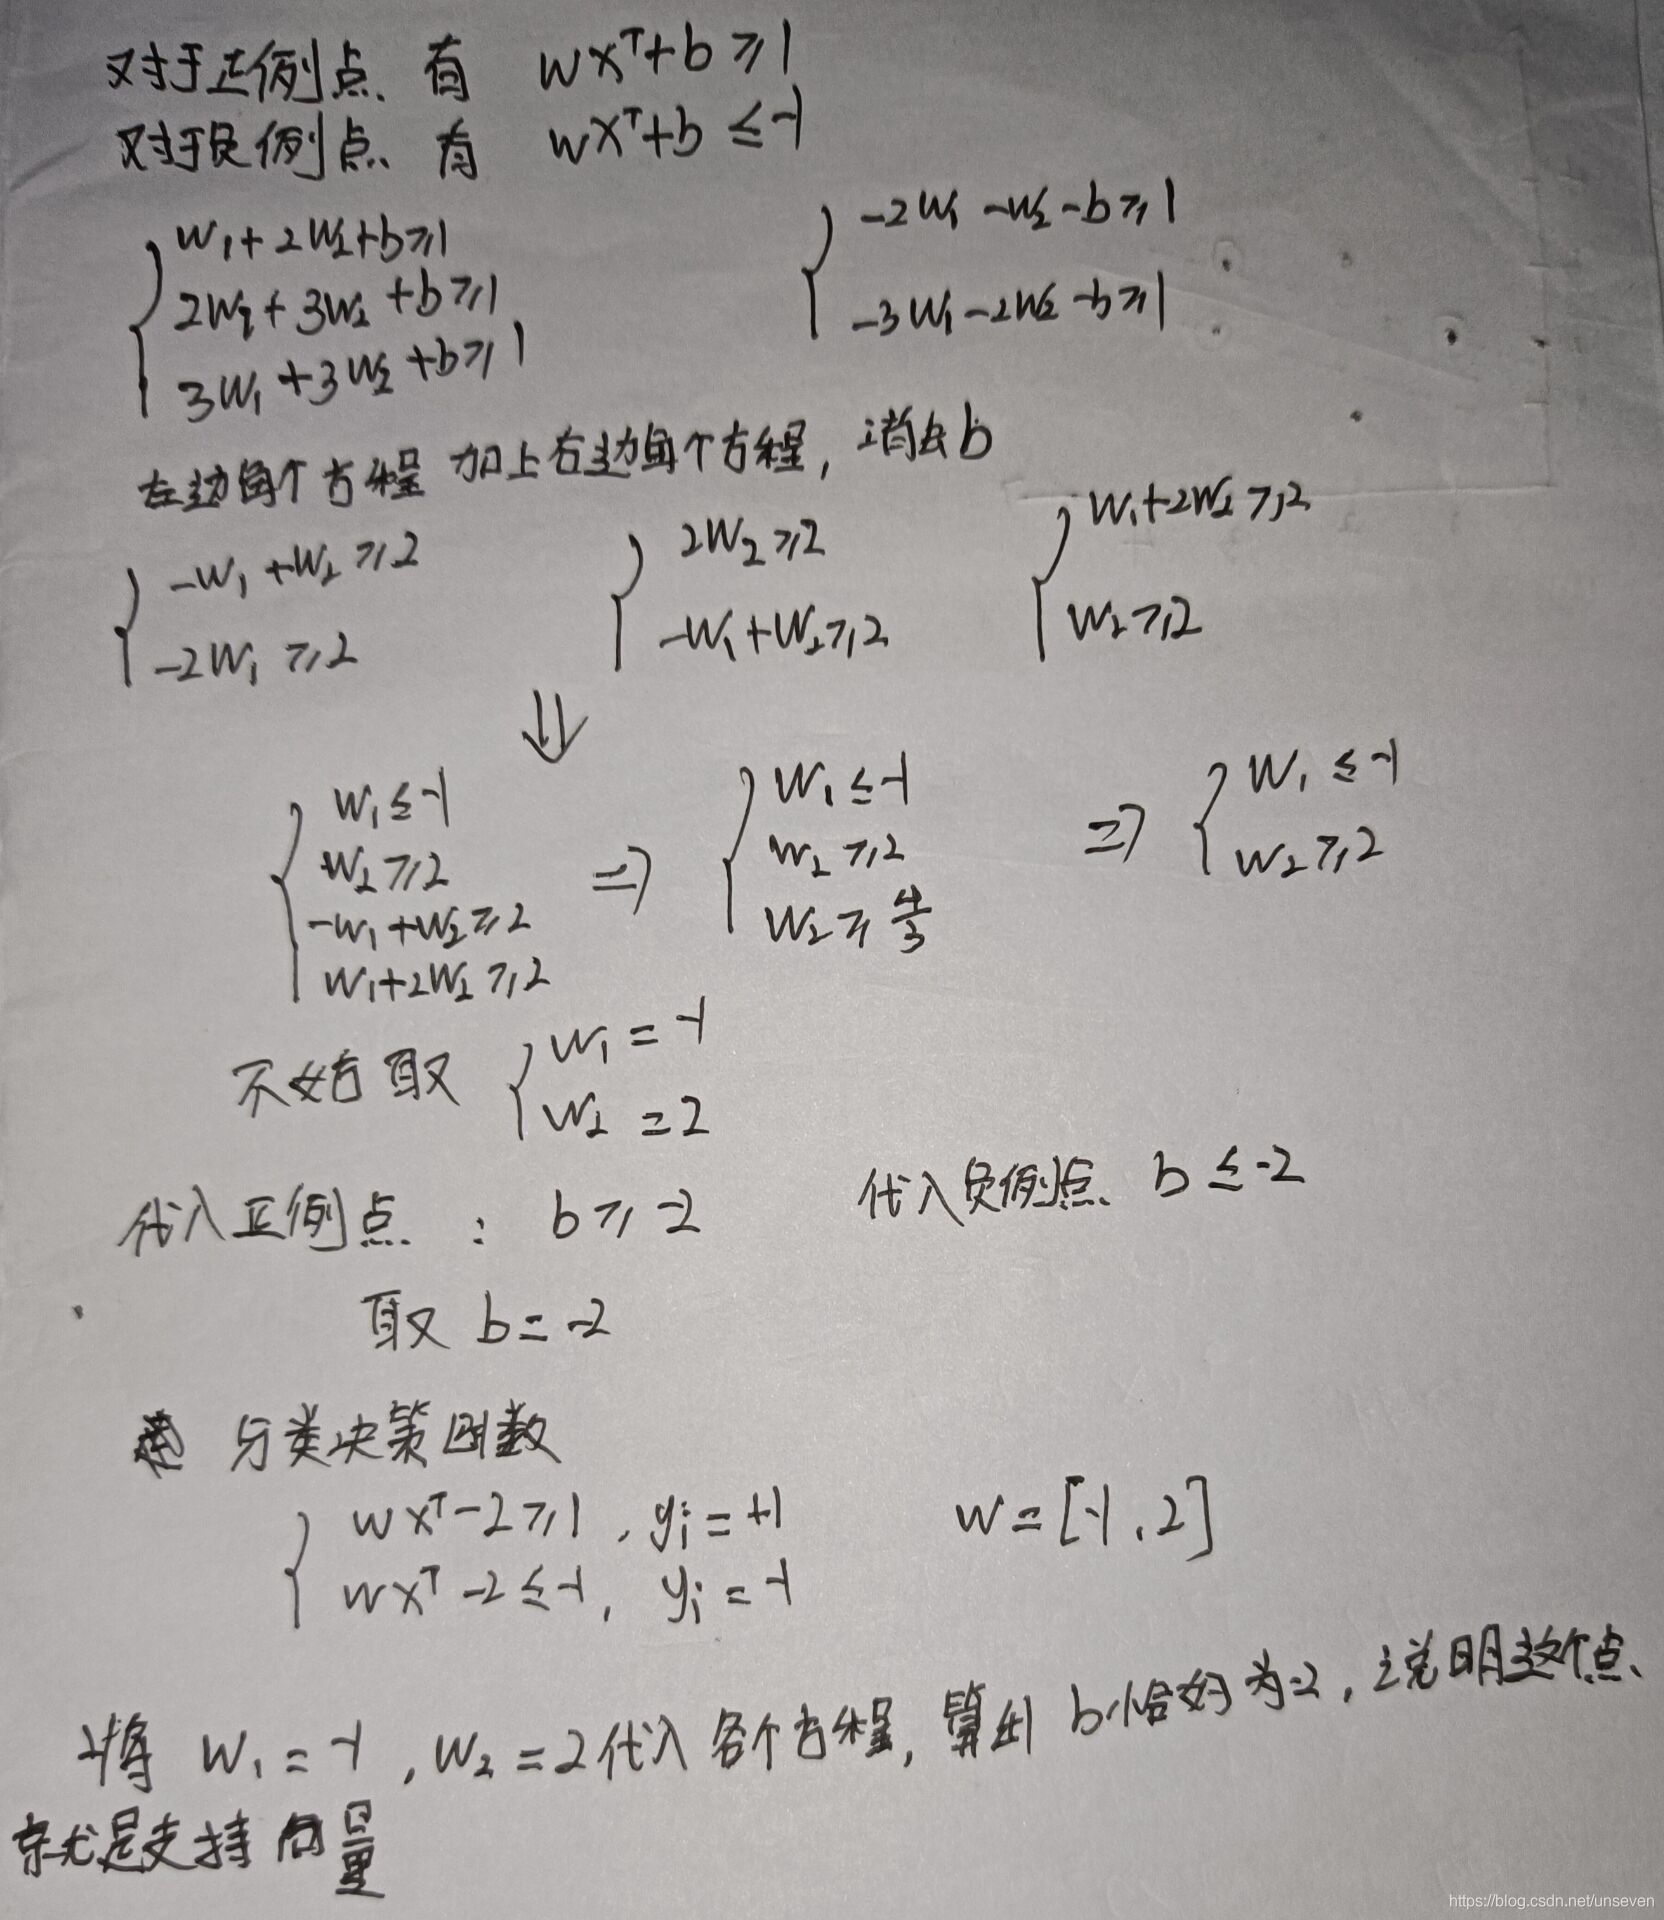 对于正例点 有 wxᵀ+b ≥ 1
对于负例点 有 wxᵀ+b ≤ -1
{ w₁+2w₂+b≥1
2w₂+3w₂+b≥1
3w₁+3w₂+b≥1,
{ -2w₁-w₂-b≥1
-3w₁-2w₂-b≥1
左边每个方程加上右边每个方程,消去b
{ -w₁+w₂≥2
-2w₁≥2
{ 2w₂≥2
-w₁+w₂≥2
{ w₁+2w₂≥2
w₂≥2
⇓
{ w₁≤-1
w₂≥2
-w₁+w₂≥2
w₁+2w₂≥2
⇒ { w₁≤-1
w₂≥2
w₂≥4/3
⇒ { w₁≤-1
w₂≥2
不妨取 { w₁=-1
w₂=2
代入正例点: b≥-2 代入负例点 b≤-2
取 b=-2
分类决策函数
{ wxᵀ-2≥1, yᵢ=+1
wxᵀ-2≤-1, yᵢ=-1
w=[-1,2]
将 w₁=-1,w₂=2代入各个方程,算出b恰好为-2,说明这个点
就是支持向量
https://blog.csdn.net/unseven